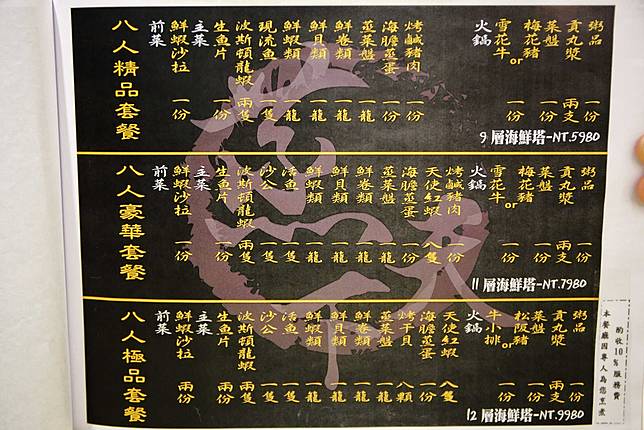 八人精品套餐
前菜
鮮蝦沙拉 一份
主菜
生魚片 一份
波斯頓龍蝦 兩隻
現流魚 一隻
鮮蝦類 一龍
鮮貝類 一龍
鮮卷類 一龍
蒸菜盤 一龍
海膽蒸蛋 一份
烤鹹豬肉 一份
火鍋
雪花牛or梅花豬 一份
菜盤 一份
貢丸漿 兩支
粥品 一份
9 層海鮮塔-NT.5980
八人豪華套餐
前菜
鮮蝦沙拉 一份
主菜
生魚片 一份
波斯頓龍蝦 兩隻
沙公 一隻
活魚 一隻
鮮蝦類 一龍
鮮貝類 一龍
鮮卷類 一龍
蒸菜盤 一龍
海膽蒸蛋 一份
天使紅蝦 八隻
烤鹹豬肉 一份
火鍋
雪花牛or梅花豬 一份
菜盤 一份
貢丸漿 兩支
粥品 一份
11 層海鮮塔-NT.7980
八人極品套餐
前菜
鮮蝦沙拉 兩份
主菜
生魚片 兩份
波斯頓龍蝦 兩隻
沙公 一隻
活魚 一隻
鮮蝦類 一龍
鮮貝類 一龍
鮮卷類 一龍
蒸菜盤 一龍
烤干貝 八顆
海膽蒸蛋 一份
天使紅蝦 八隻
火鍋
牛小排or松阪豬 一份
菜盤 一份
貢丸漿 兩支
粥品 一份
12 層海鮮塔-NT.9980
本餐廳因專人為您烹煮
酌收10%服務費